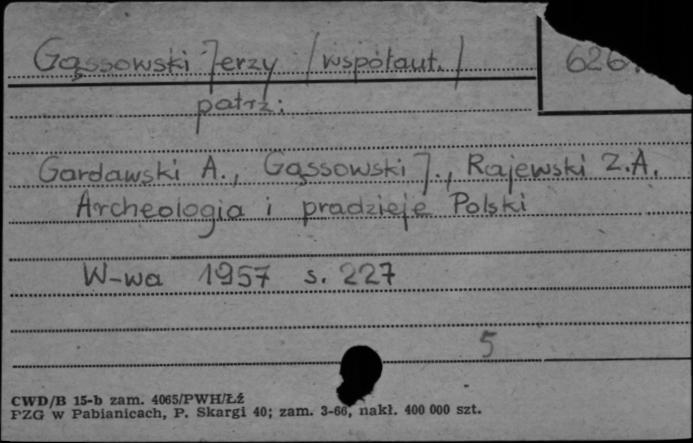 Gąssowski Jerzy /współaut./
626.
patrz:
Gardawski A., Gąssowski J., Rajewski Z.A.
Archeologia i pradzieje Polski
W-wa 1957 s. 227
5
CWD/B 15-b zam. 4065/PWH/Łź
PZG w Pabianicach, P. Skargi 40; zam. 3-66, nakł. 400 000 szt.